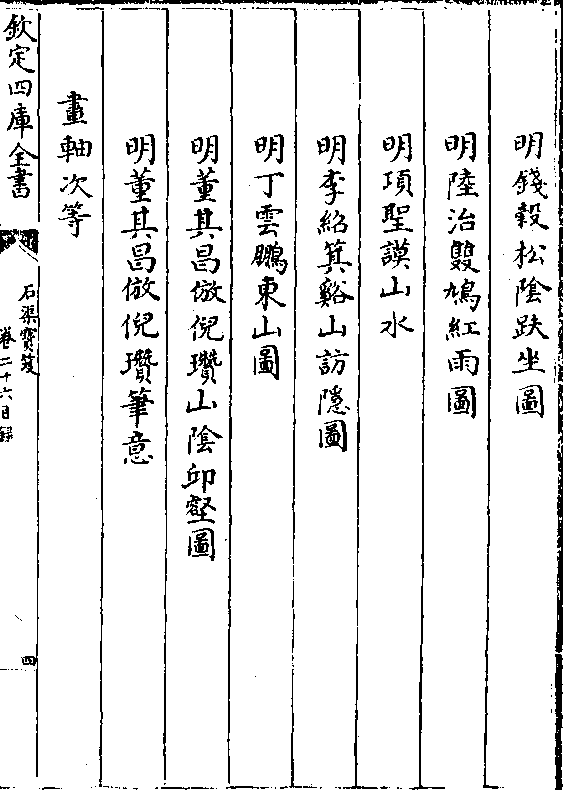 明錢榖松陰趺坐圖
明陸治雙鳩紅雨圖
明項聖謨山水
明李紹箕谿山訪隱圖
明丁雲鵬東山圖
明董其昌倣倪瓚山陰邱壑圖
明董其昌倣倪瓚筆意
畫軸次等
欽定四庫全書
石渠寶笈
卷二十六目錄
四